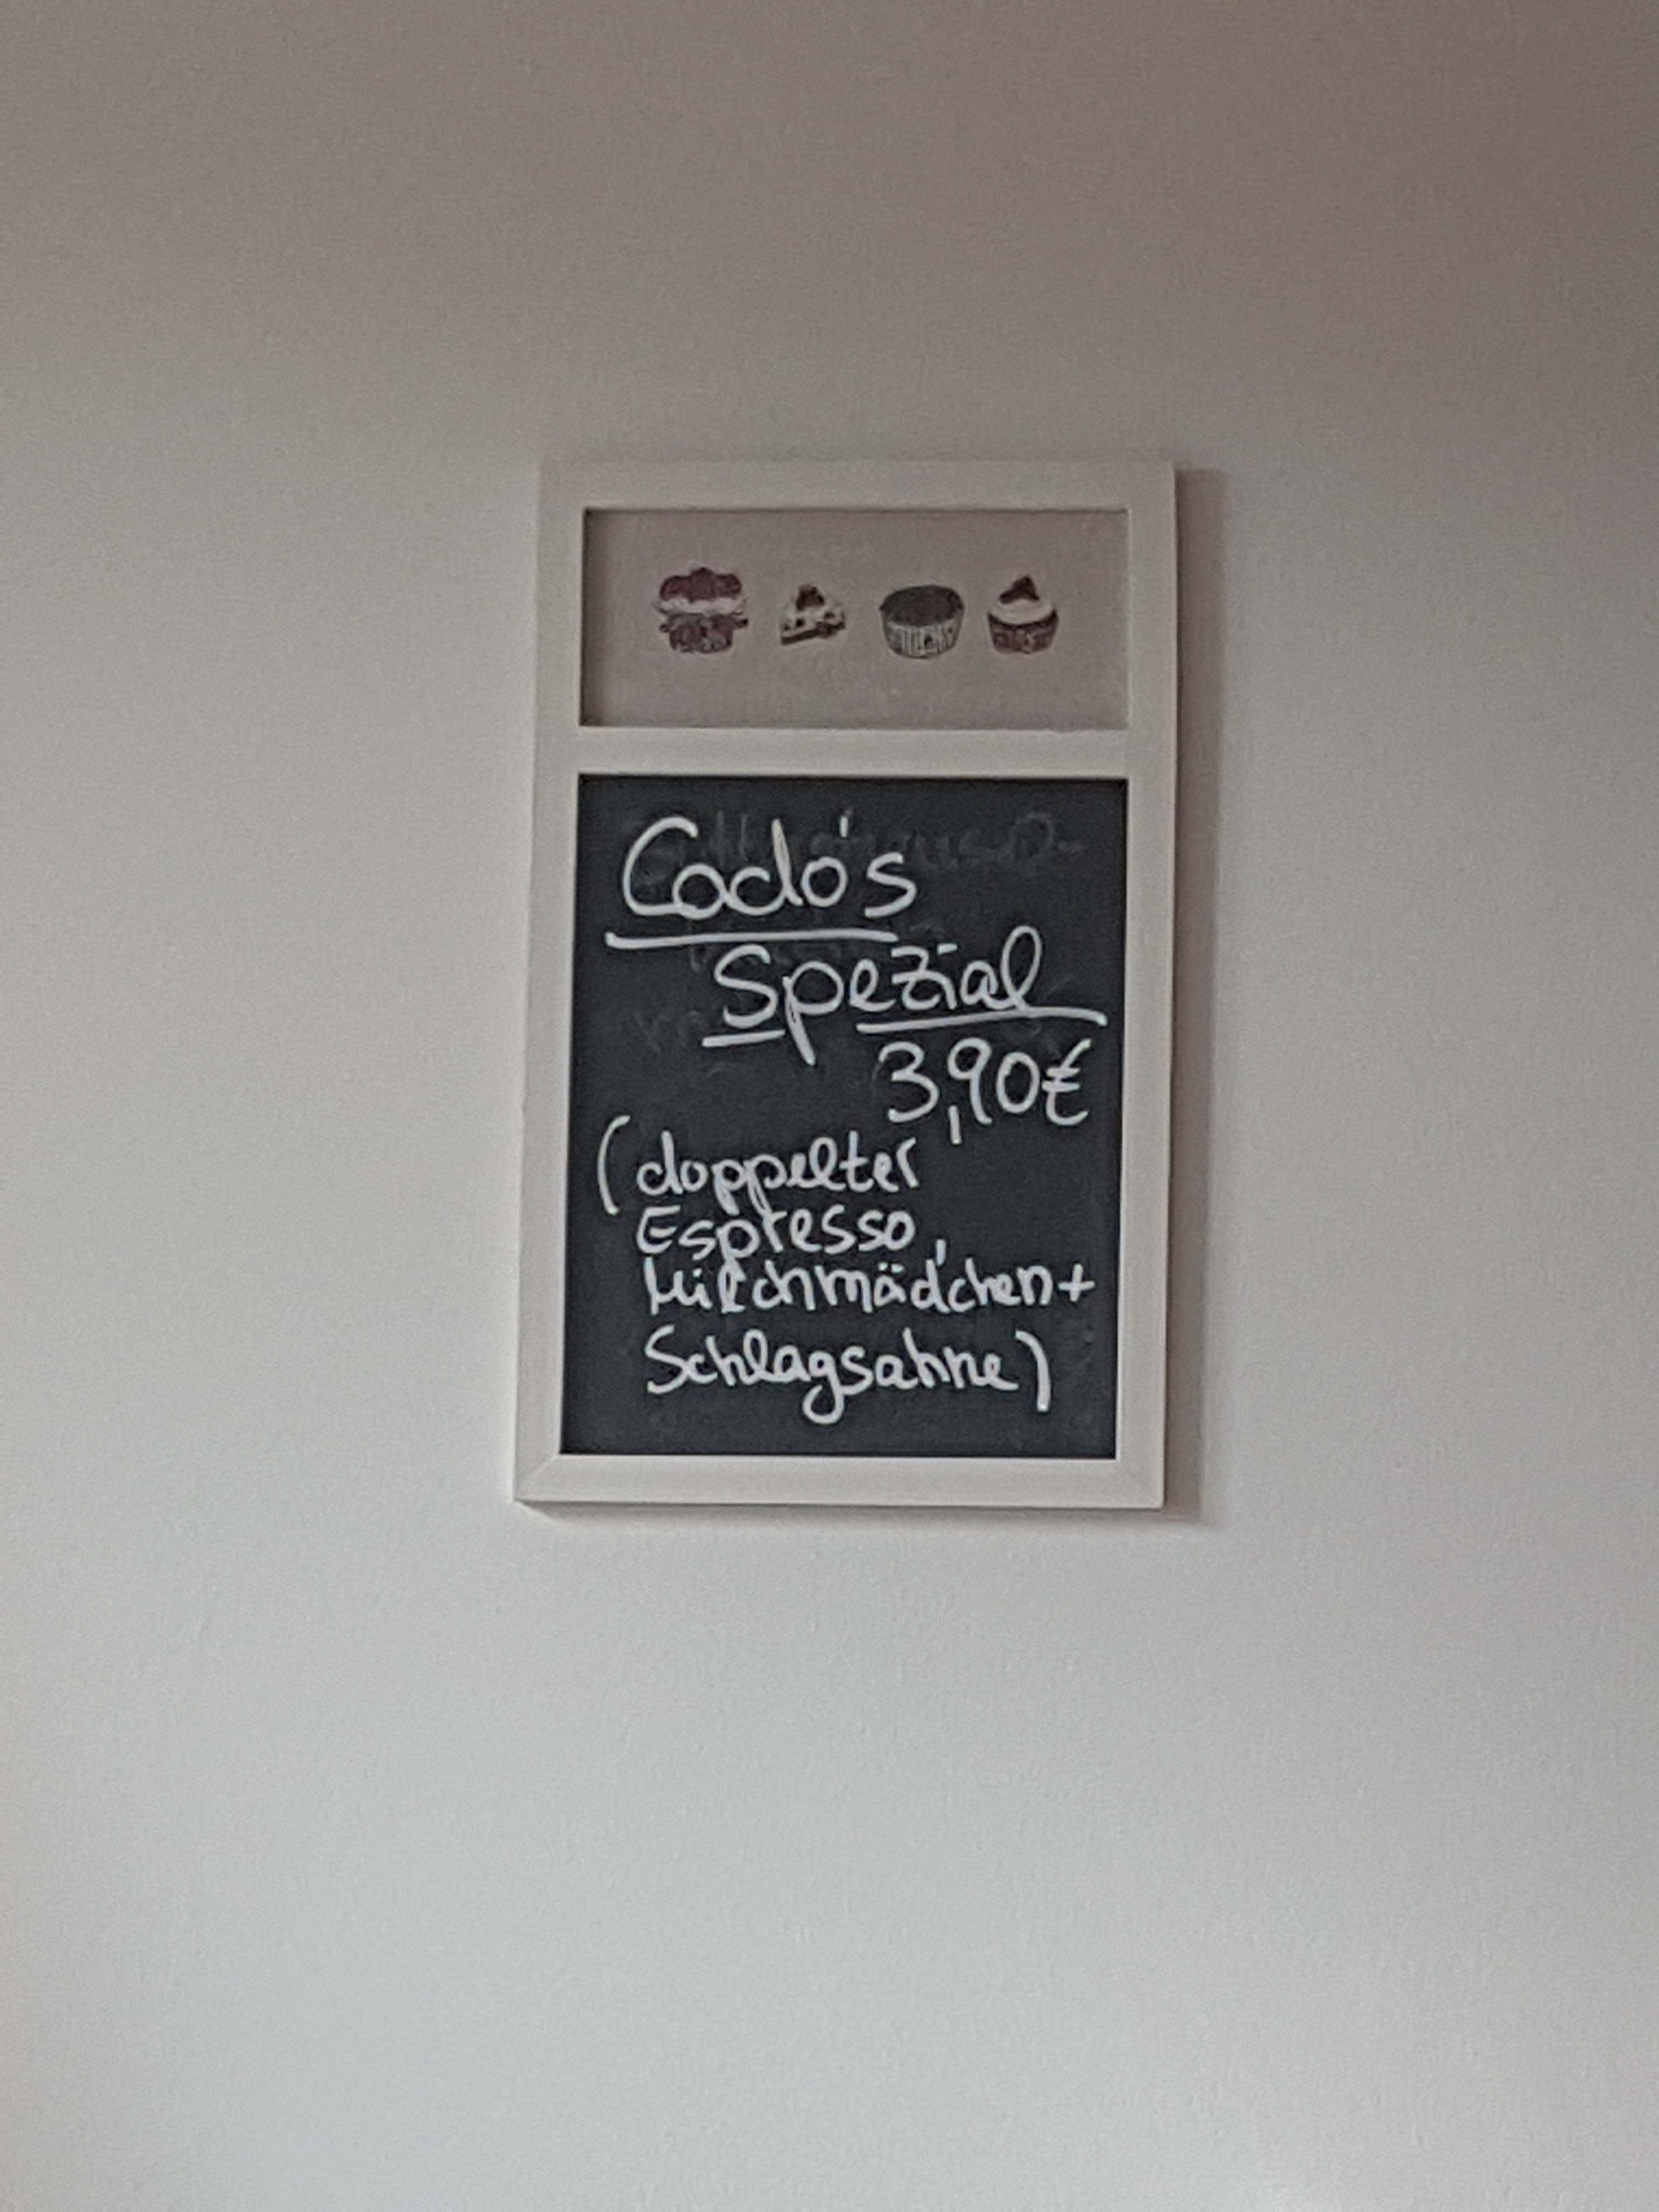 Cado's
Spezial
3,90€
(doppelter
Espresso,
Milchmädchen+
Schlagsahne)